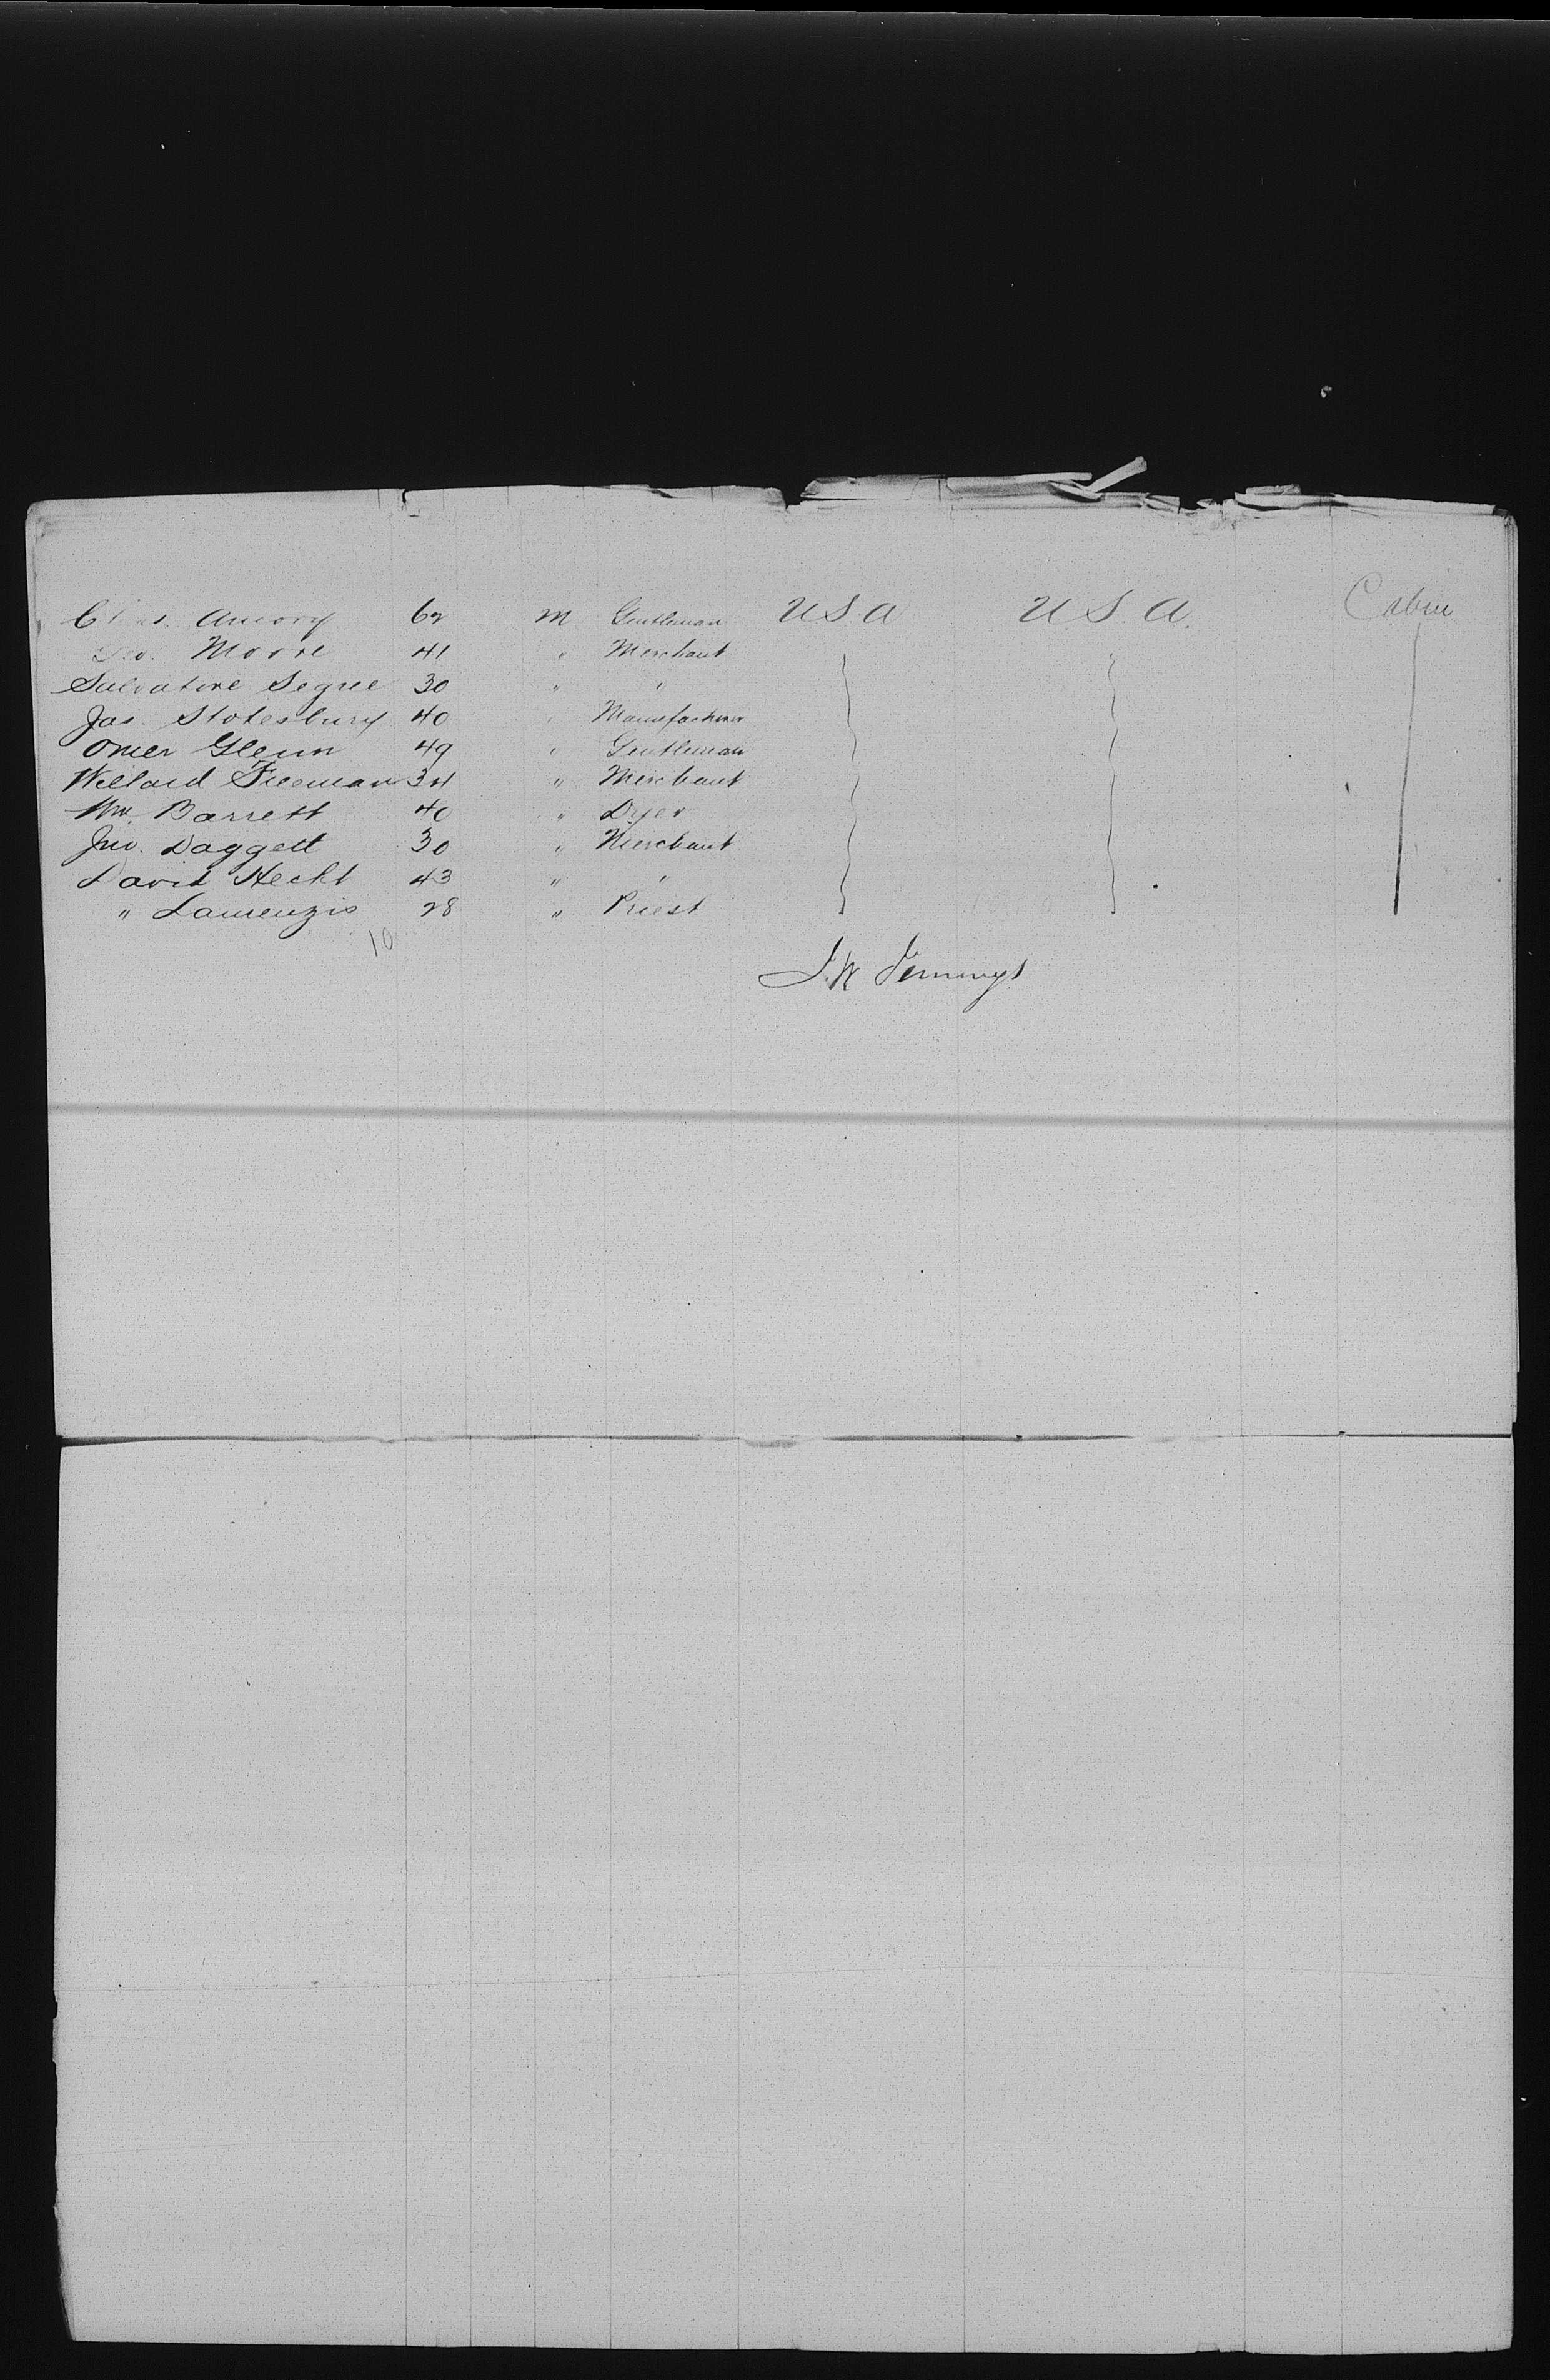 Chas. Amory 62 M Gentleman U S A U. S. A. Cabin
Geo. Moore 41 " Merchant
Salvatore Segree 30 " "
Jas. Stotesbury 40 " Manufacturer
Omer Glenn 49 " Gentleman
Willard Freeman 34 " Merchant
Wm. Barrett 40 " Dyer
Jno. Daggett 30 " Merchant
David Hecht 43 " "
" Laurenzis 28 " Priest
10
J. W Jennings